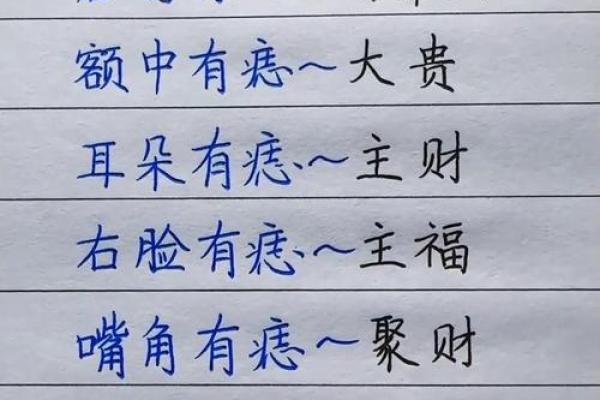 额中有痣~大贵
耳朵有痣~主财
右脸有痣~主福
嘴角有痣~聚财